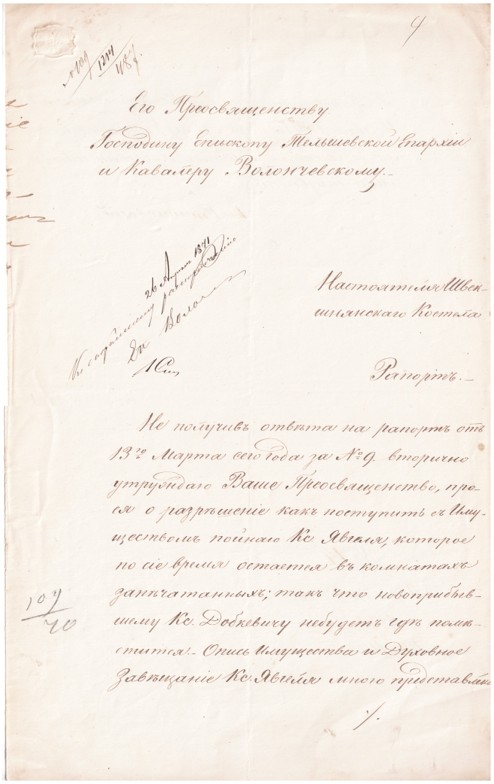 9
№ 109
1304
487
Его Преосвященству
Господину Епископу Тельшевской Епархіи
и Кавалеру Волончевскому.
26 Апреля 1871
Настоятеля Швек-
шнянскаго Костела
Рапортъ.
Не получивъ отвѣта на рапортъ отъ
13го Марта сего года за № 9. вторично
утруждаю Ваше Преосвященство, про-
ся о разрѣшеніе какъ поступить съ Иму-
ществомъ пойнаго Кс Явгеля, которое
по сіе время остается въ комнатахъ
запѣчатанныхъ; такъ что новоприбыв-
шему Кс. Добкевичу небудетъ гдѣ помѣ-
стится. Опись Имущества и Духовное
Завѣщаніе Кс Явгеля мною представлѣн
107
70
./.